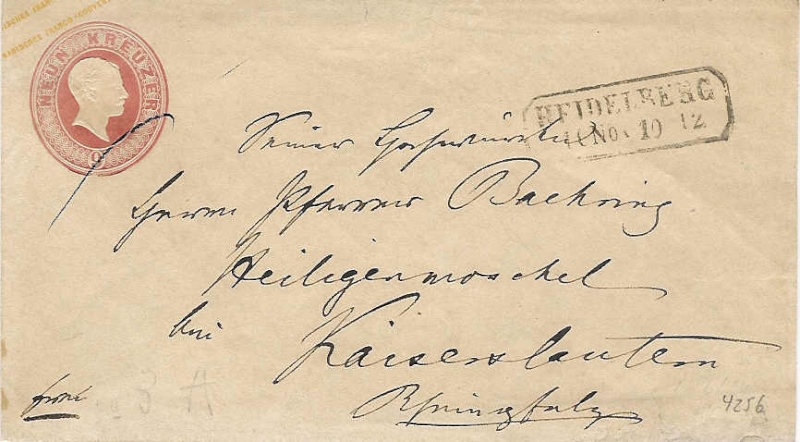 NEUN KREUZER
9
HEIDELBERG
11 Nov 10 12
Seiner Hochwürden
Herrn Pfarrer Baehring
Heiligenmoschel
bei
Kaiserslautern
Rheinpfalz
franco
4256